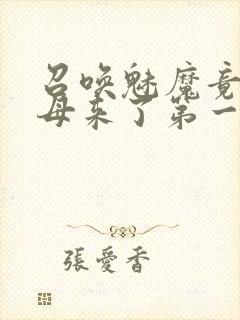 召喚魅魔竟
母来了第一
張愛香